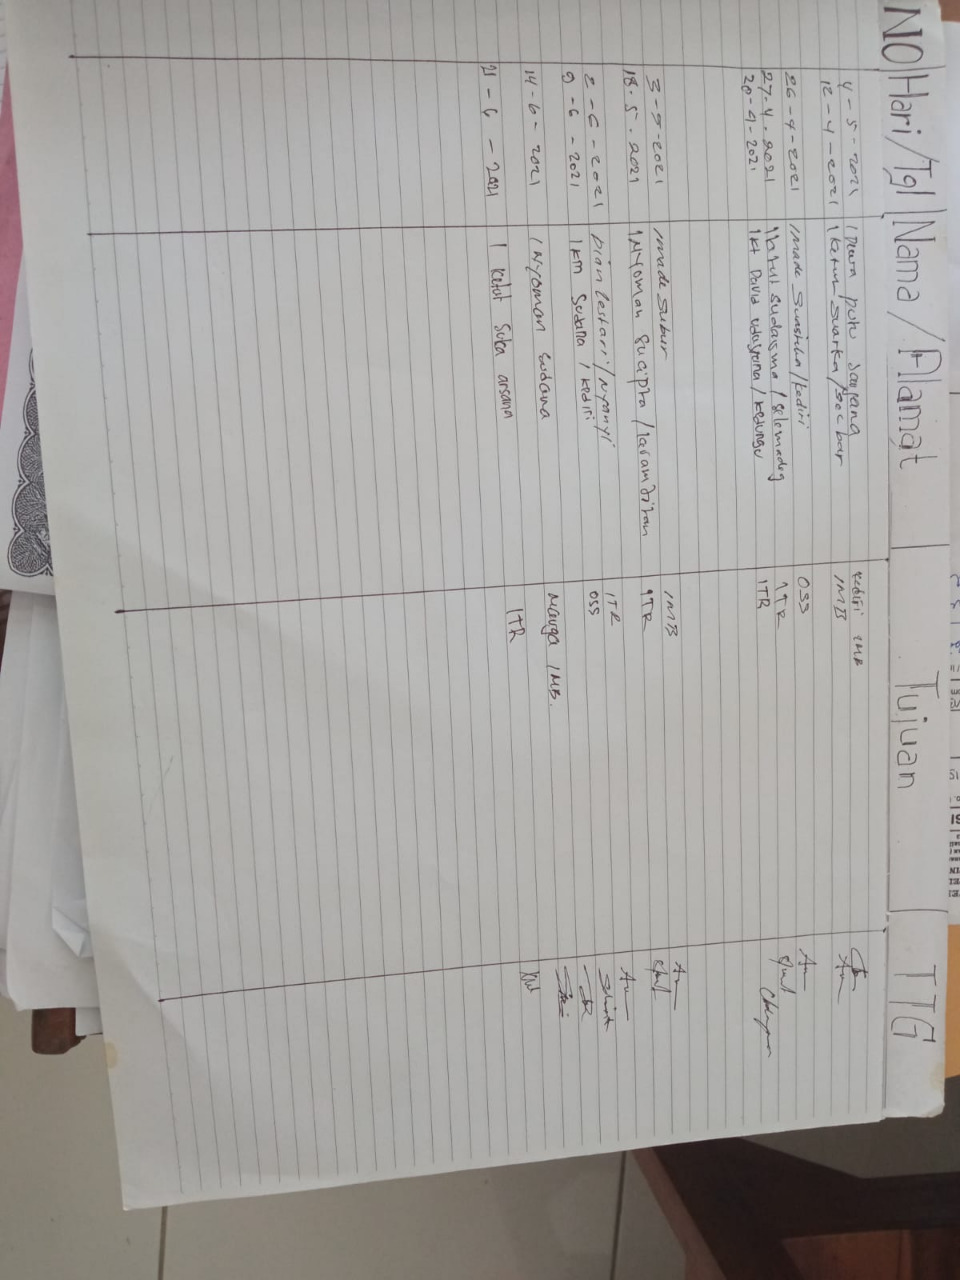 NO Hari/Tgl Nama / Alamat Tujuan TTG
4 - 5 - 2021 I Dewa putu Sanjang kediri IMB
12 - 4 - 2021 I Ketut Suarka / Bec bar IMB
26 - 4 - 2021 I made Sunstika / kediri OSS
27. 4. 2021 I Putu Sudarsma / Selemadeg ITR
20 - 4 - 2021 I Kt David udayana / Kedungu ITR
3 - 5 - 2021 I made Subur IMB
18. 5. 2021 I Nyoman Sucipta / ITR
2 - 6 - 2021 Dian Lestari / Nyanyi ITR
9 - 6 - 2021 I KM Sudana / Kediri OSS
14 - 6 - 2021 I Nyoman Sudana IMB.
21 - 6 - 2021 I Ketut Suka arsana ITR